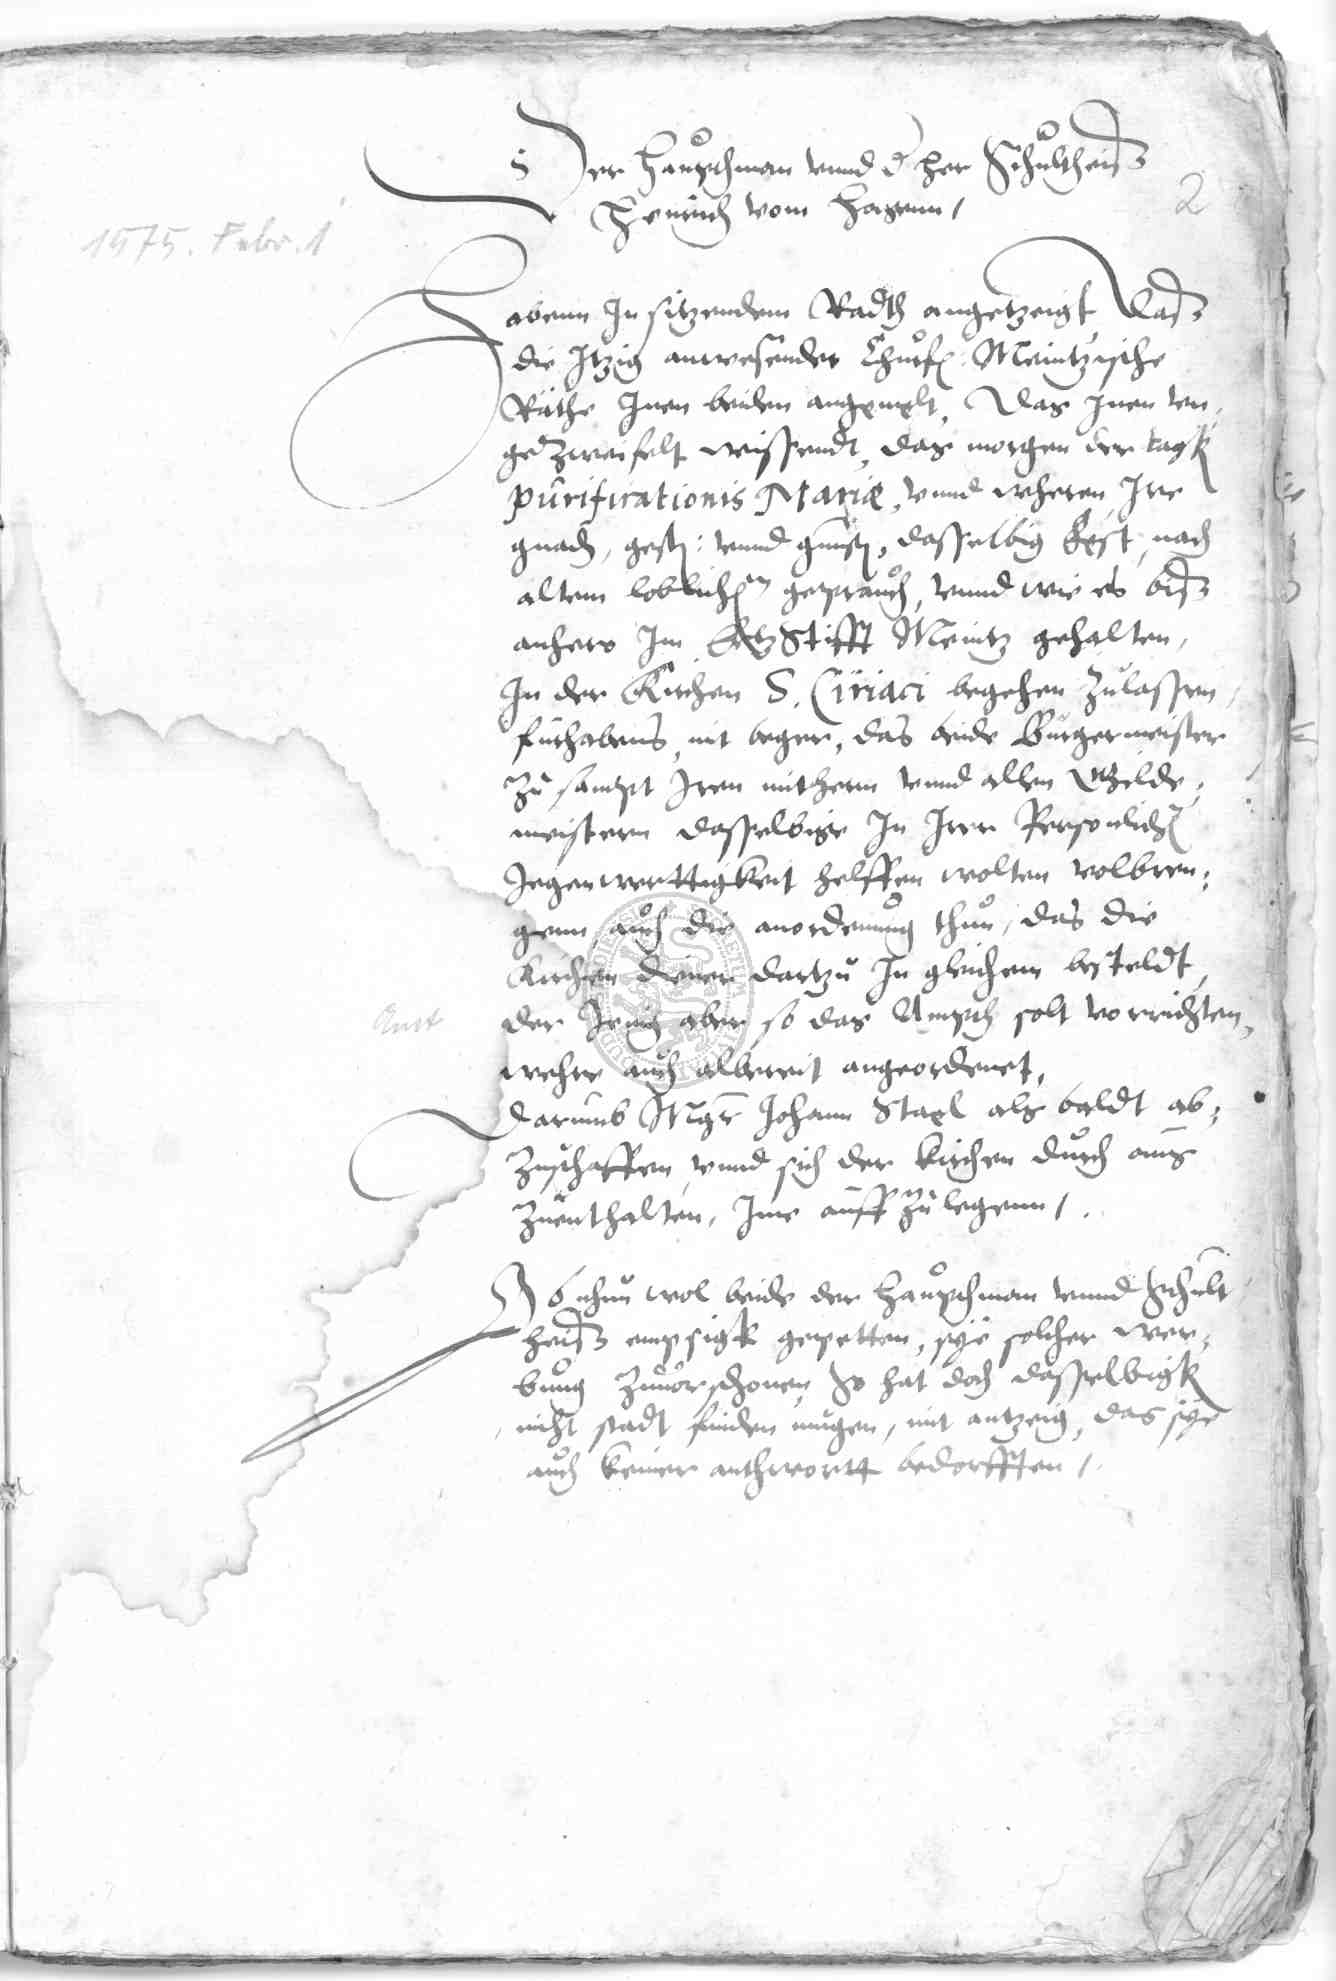 Der Hauptman vnnd der Her Schultheis
Heinrich vom Hagenn /
2
1575. Febr. 1
Habenn In sitzendem Radth angetzeigt, Das
die Itzig anwesender Churf: Meintzische
Räthe Inen beiden angemelt, Das Inen vn,
gedzweifelt wissendt, das morgen der tagk
purificationis Mariæ, vnnd wheren Ire
gnad, gestr: vnnd gunst, dasselbig Fest, nach
altem loblichen geprauch, vnnd wie es bis
anhero Im ErtzStifft Meintz gehalten,
In der Kirchen S. Ciriaci begehen zulassen,
furhabens, mit beger, das beide Burgermeister
zu sampt Iren mithern vnnd allen Gilde,
meistern dasselbige In Irer Personlicher
Jegenwerttigkeit helffen wolten volbren,
genn, auch die anordenung thun, das die
Kirchen diener dartzu In gleichem besteldt,
der Jenig aber so das Ampth solt vorrichten,
Amt
wehre auch albereit angeordenet,
Darumb Mgr Johann Stael als baldt ab,
zuschaffen, vnnd sich der kirchen durch aus
zuenthalten, Ime auff zulegenn /.
Ob nhun wol beide der Hauptman vnnd Schult
heis empsigk gepetten, sye solcher wer,
bung zuuorschonen, So hat doch dasselbigk
nicht stadt finden mugen, mit antzeig, das sye
auch keiner anthwortt bedorfften /.